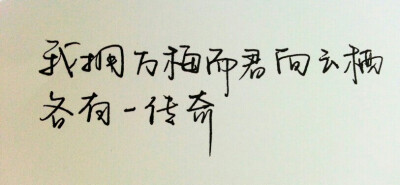 我拥万梅而君向云栖
各有一传奇